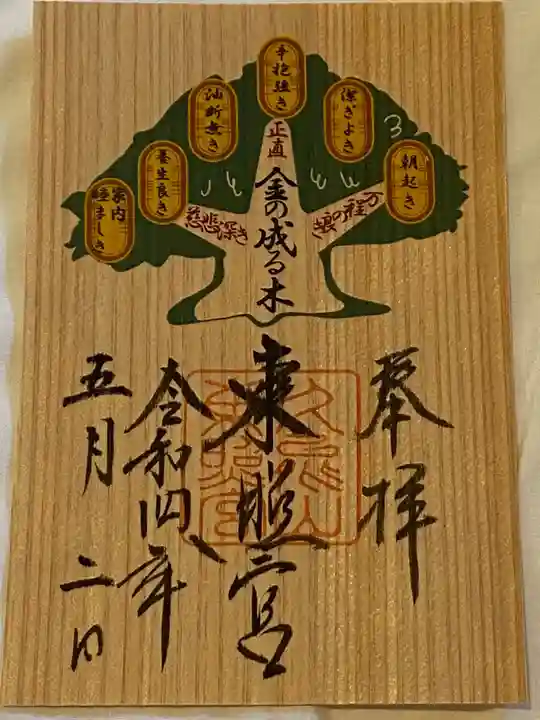 朝起き
潔ぎよき
辛抱強き
油断無き
養生良き
家内睦ましき
正直
万程の良き
慈悲深き
金の成る木
奉拝
東照宮
令和四年
五月二日